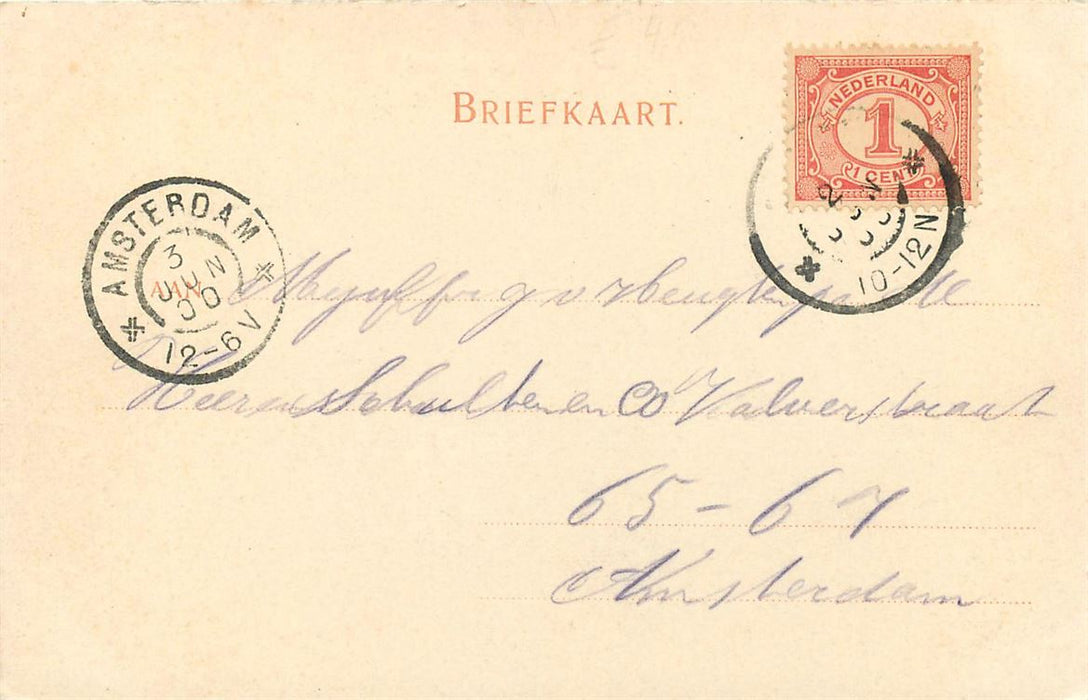 BRIEFKAART.
NEDERLAND
1
1 CENT
10-12N
AMSTERDAM
3 JUN 00
12-6V
AAN
Mejuff
Heeren Schulten en Co Kalverstraat
65-67
Amsterdam